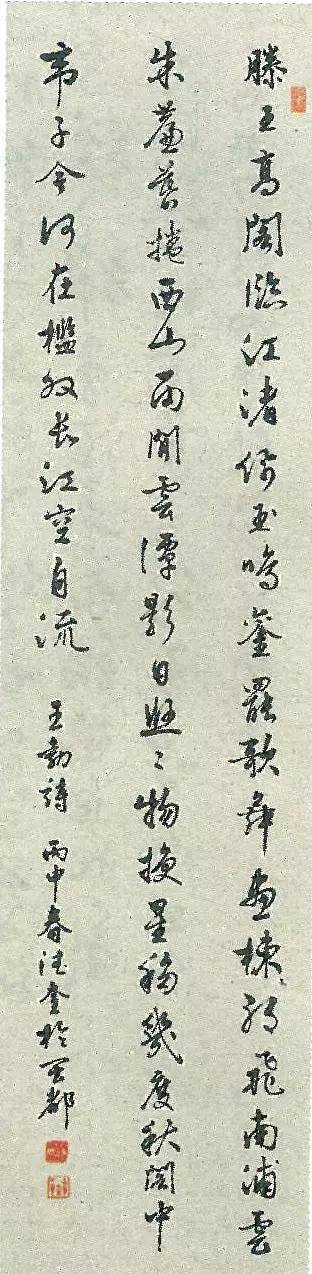 滕王高閣臨江渚佩玉鳴鑾罷歌舞畫棟朝飛南浦雲
朱簾暮捲西山雨閒雲潭影日悠〻物換星移幾度秋閣中
帝子今何在檻外長江空自流 王勃詩 丙申春奎於都